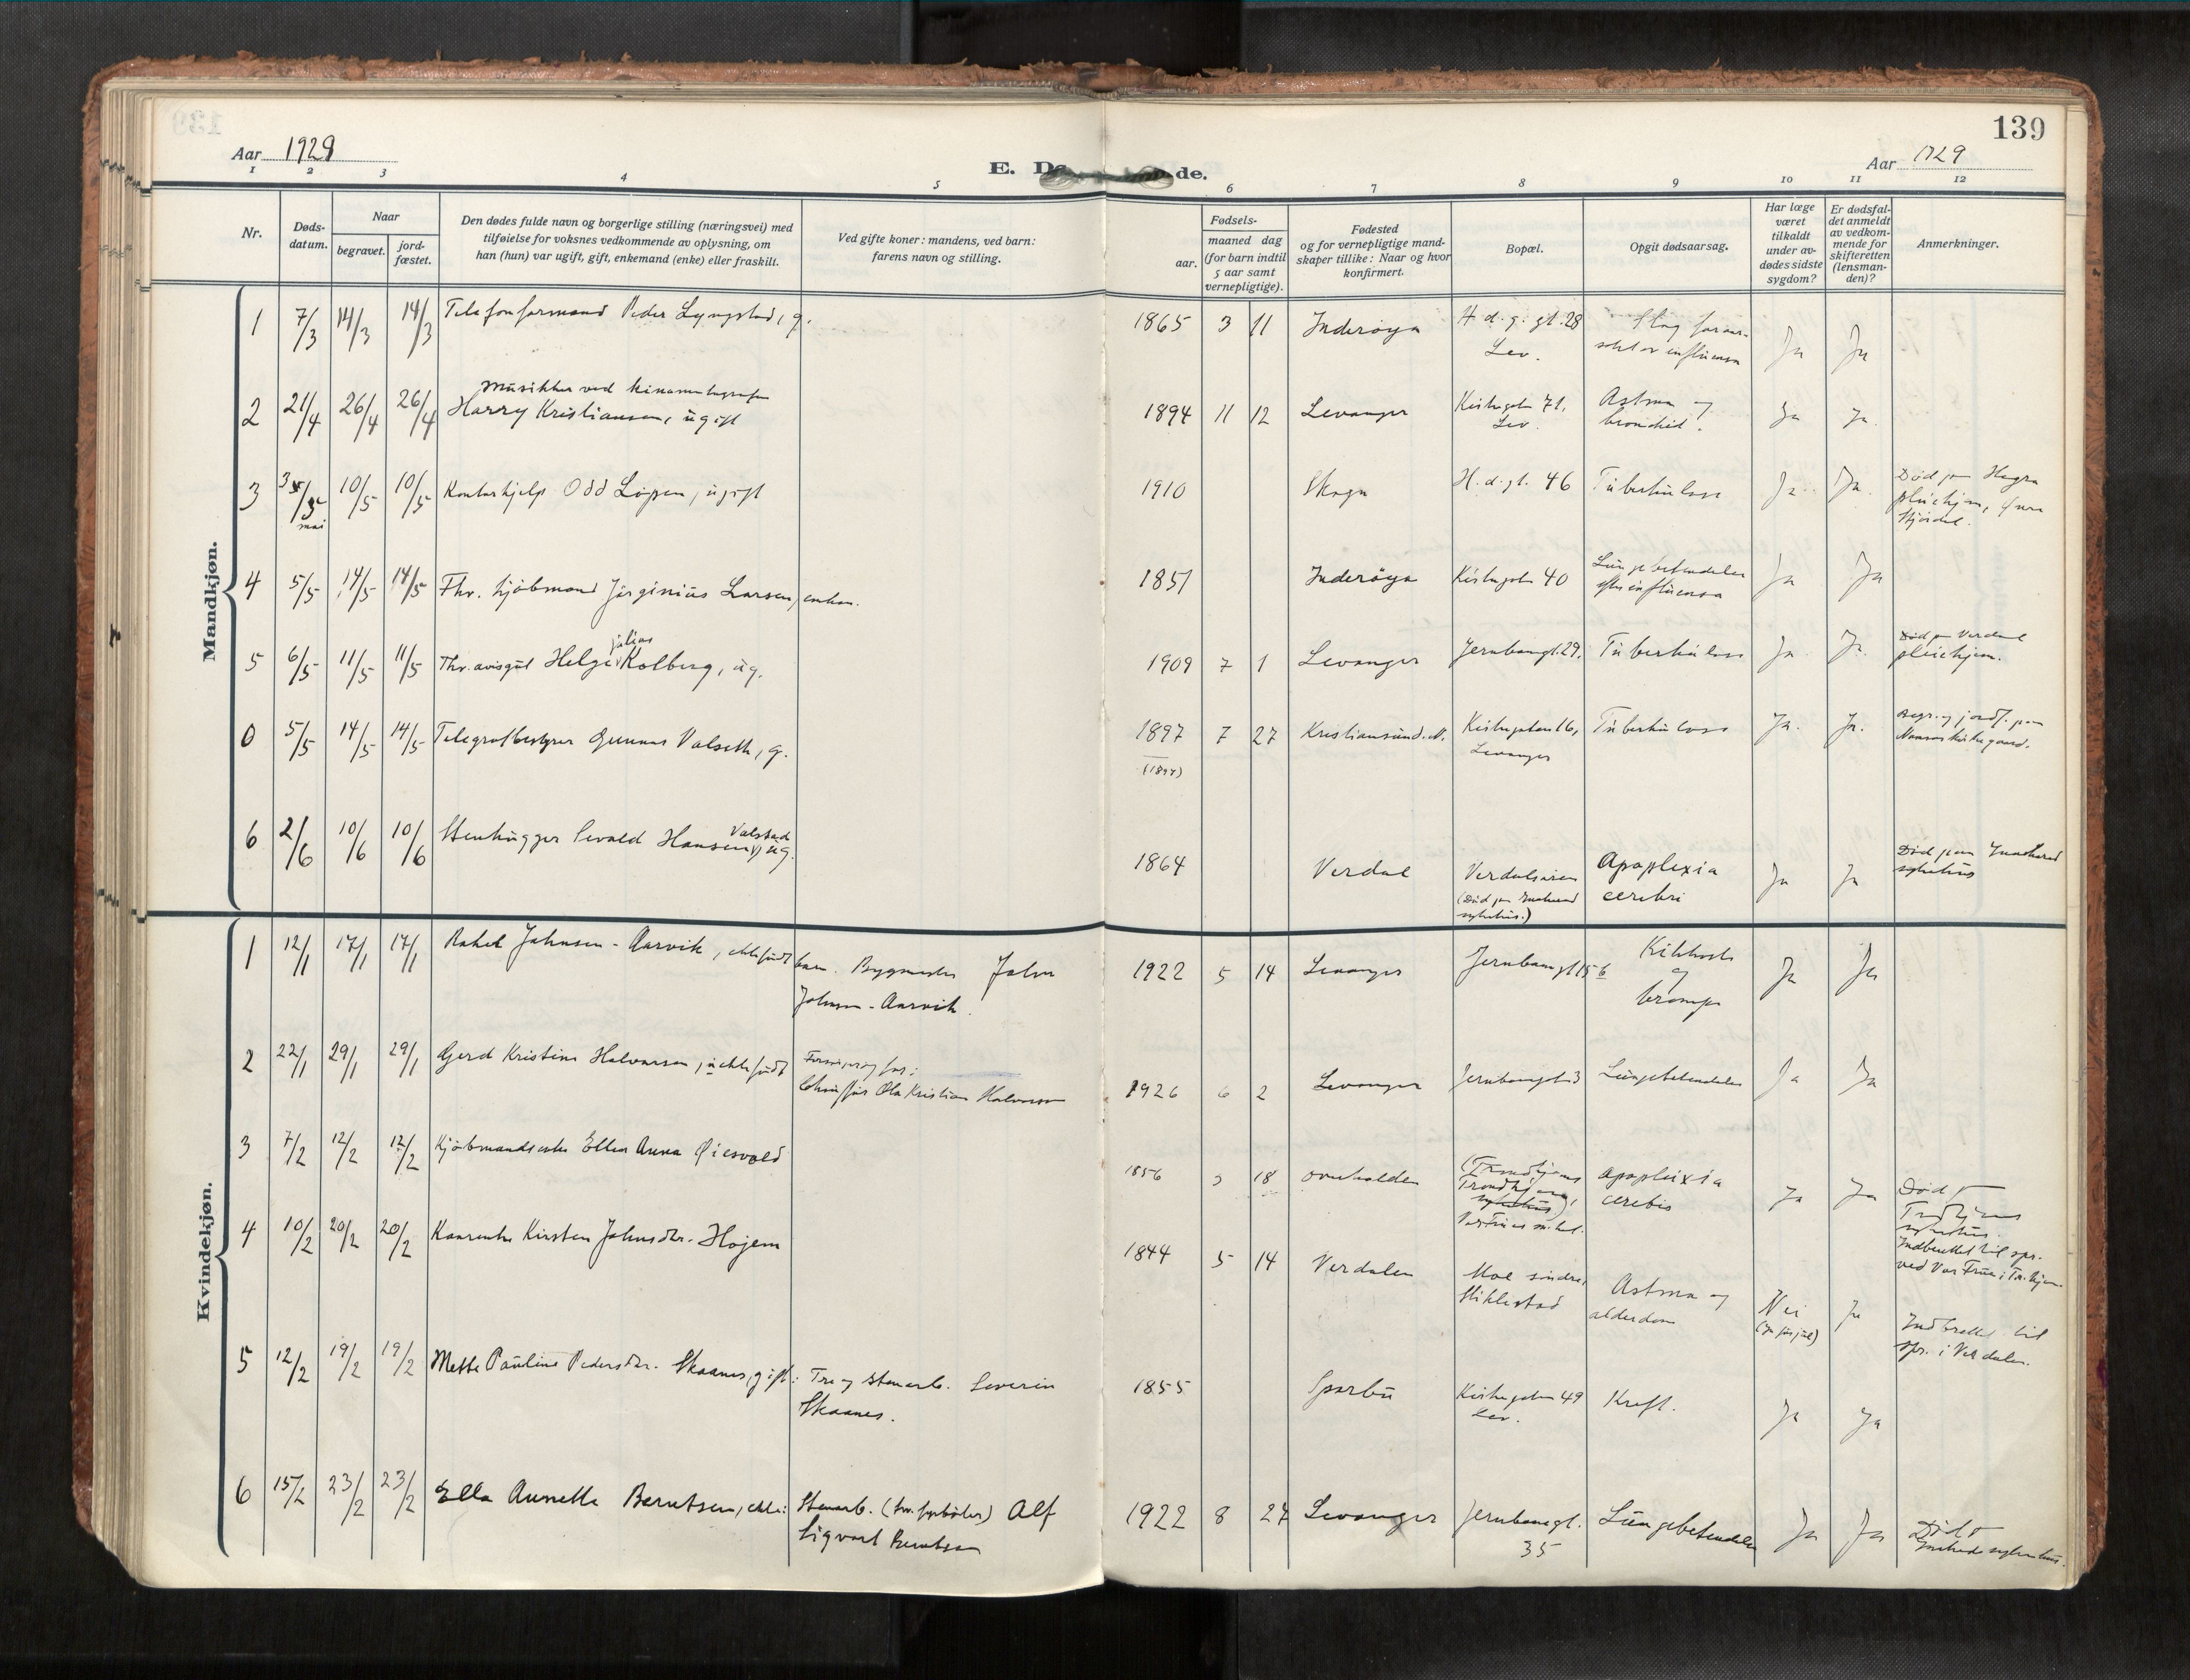 139
Aar 1929
E. De
de.
Aar 1929
1 2 3 4 5 6 7 8 9 10 11 12
Nr.
Døds-
datum.
Naar
begravet.
jord-
fæstet.
Den dødes fulde navn og borgerlige stilling (næringsvei) med
tilføielse for voksnes vedkommende av oplysning, om
han (hun) var ugift, gift, enkemand (enke) eller fraskilt.
Ved gifte koner: mandens, ved barn:
farens navn og stilling.
Fødsels-
aar.
maaned dag
(for barn indtil
5 aar samt
vernepligtige).
Fødested
og for vernepligtige mand-
skaper tillike: Naar og hvor
konfirmert.
Bopæl.
Opgit dødsaarsag.
Har læge
været
tilkaldt
under av-
dødes sidste
sygdom?
Er dødsfal-
det anmeldt
av vedkom-
mende for
skifteretten
(lensman-
den)?
Anmerkninger.
Mandkjøn.
1 7/3 14/3 14/3 Telefonformand Peder Lyngstad, g. 1865 3 11 Inderøya H.d.g. gt. 28 Slag foraar-
Lev. saket av influensa Ja Ja
musikker ved kinematografen
2 21/4 26/4 26/4 Harry Kristiansen, ugift 1894 11 12 Levanger Kirkegaten 71, Astma og Ja Ja.
Lev. bronchit.
3 10/5 10/5 Kontorhjelp Odd Løpen, ugift 1910 Skogn H.d.gt. 46 Tuberkulose Ja Ja. Død paa Hegra
mai pleiehjem,
Stjørdal.
4 5/5 14/5 14/5 Fhv. kjøbmand Jørginius Larsen, enkem. 1851 Inderøya Kirkegaten 40 Lungebetendelse Ja Ja
efter influensa
julius
5 6/5 11/5 11/5 Fhv. avisgut Helge Kolberg, ug. 1909 7 1 Levanger Jernbanegt. 29. Tuberkulose Ja Ja. Død paa Verdal
pleiehjem.
0 5/5 14/5 14/5 Telegrafbestyrer Gunnar Valseth, g. 1897 7 27 Kristiansund.N. Kirkegaten 16, Tuberkulose Ja. Ja. Begr. og jordf. paa
(1897) Levanger Namsos kirkegaard.
Valstad
6 2/6 10/6 10/6 Stenhugger Sevald Hansen, ug. 1864 Verdal Verdalsøren Apoplexia Ja Ja Død paa Innherred
(Død paa Innherred cerebri sykehus
sykehus.)
Kvindekjøn.
1 12/1 17/1 17/1 Rakel Johnsen-Aarvik, ektefødt barn. Bygmester John 1922 5 14 Levanger Jernbanegt 15 b Kikhoste Ja Ja
Johnsen-Aarvik. og
krampe
2 22/1 29/1 29/1 Gjerd Kristine Halvorsen, uektefødt 1926 6 2 Levanger Jernbanegt 3 Lungebetendelse Ja Ja
Chauffør Ola Kristian Halvorsen
3 7/2 12/2 12/2 Kjøbmandsenke Ellen Anna Øiesvold 1856 18 overhalden (Trondhjems apoplexia Ja Ja Død
Trondhjem, cerebis
sykehus) sykehus.
Vor Frues m.het. Indberettet til spr.
ved Vor Frue i Tr.hjem.
4 10/2 20/2 20/2 Kaarenke Kirsten Johnsdtr. Højem 1844 5 14 Verdalen Moe søndre, Astma og Nei Ja Indberettet til
Stiklestad alderdom (Ja før jul) spr. i Verdalen.
5 12/2 19/2 19/2 Mette Pauline Pedersdtr. Skaanes, gift: Tre og stenarb. Severin 1855 Sparbu Kirkegaten 49 Kreft. Ja Ja
Skaanes. Lev.
6 15/2 23/2 23/2 Ella Annette Berntsen, ekte: Stenarb. (fhv. fyrbøter) Alf 1922 8 27 Levanger Jernbanegt. Lungebetendelse Ja Ja Død
Sigvart Berntsen 35 Innherred sykehus.